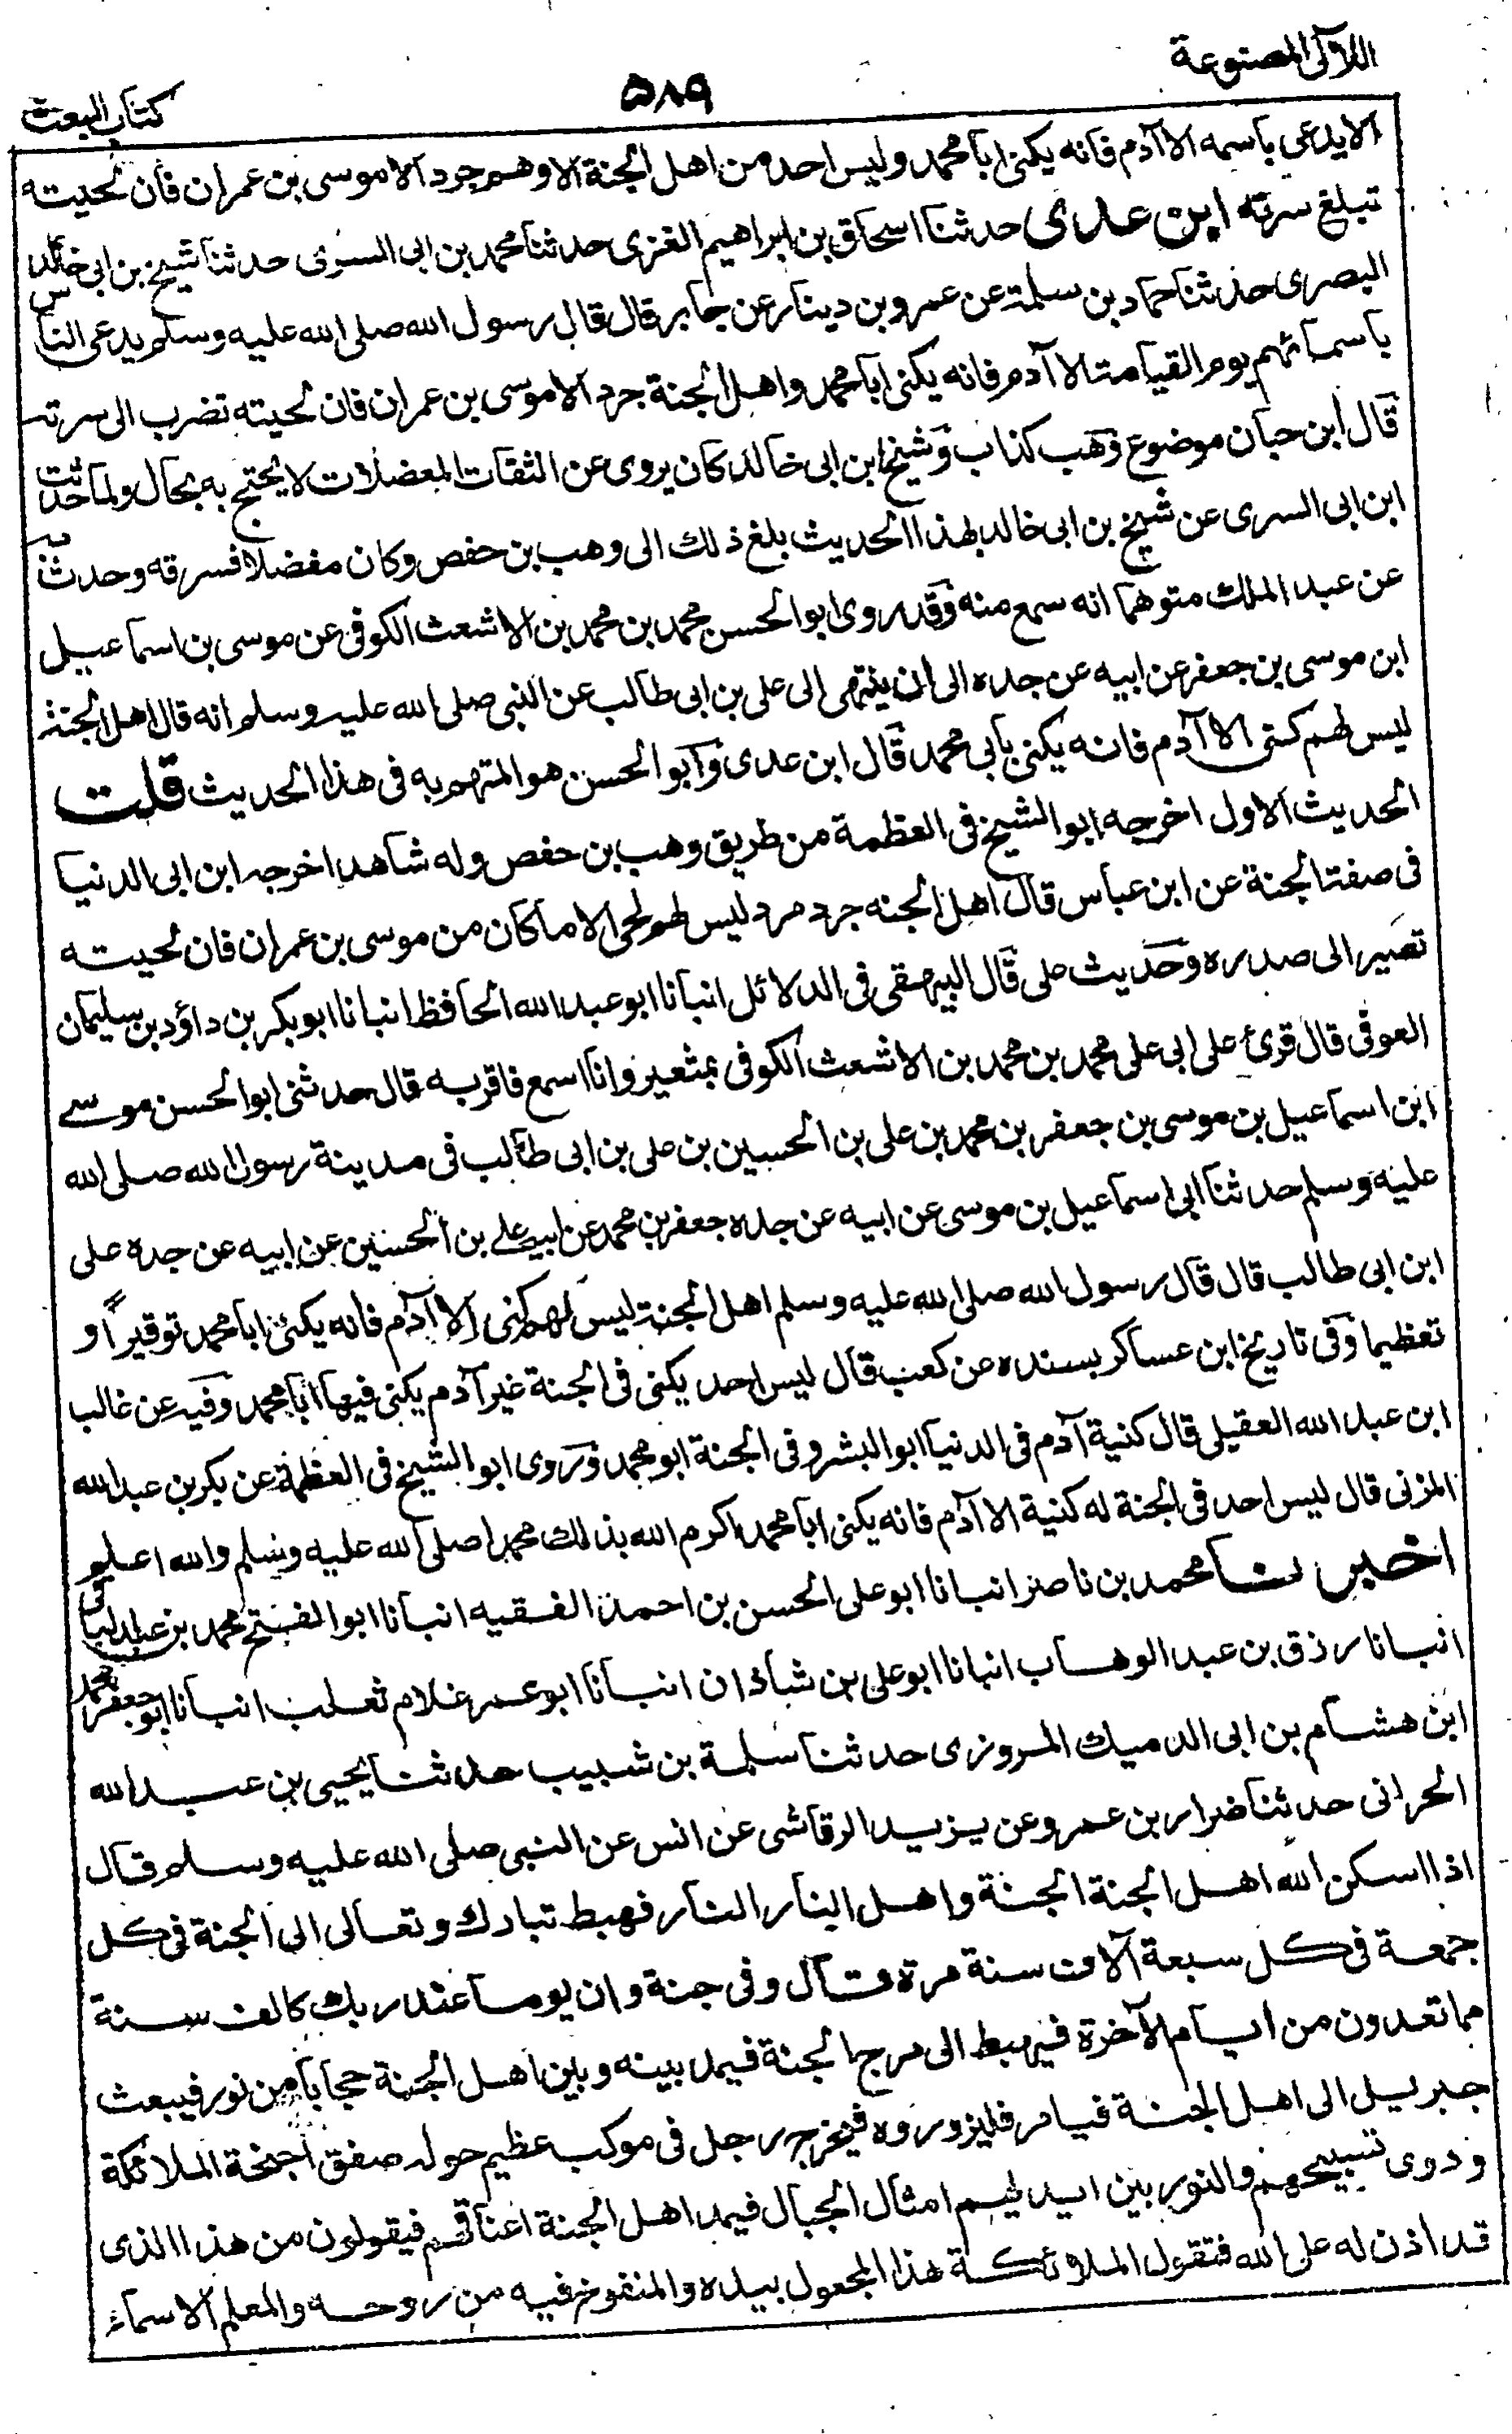 اللآلى المصنوعة
۵۸۹
كتاب البعث
الا يدعى باسمه الا آدم فانه يكنى ابا محمد وليس احد من اهل الجنة الا وهم جرد الا موسى بن عمران فان لحيته
تبلغ سرته ابن عدى حدثنا اسحاق بن ابراهيم الغزى حدثنا محمد بن ابى السرى حدثنا شيخ بن ابى خالد
البصرى حدثنا حماد بن سلمة عن عمرو بن دينار عن جابر قال قال رسول الله صلى الله عليه وسلم يدعى الناس
باسمائهم يوم القيامة الا آدم فانه يكنى ابا محمد واهل الجنة جرد الا موسى بن عمران فان لحيته تضرب الى سرته
قال ابن حبان موضوع وهب كذاب وشيخ ابن ابى خالد كان يروى عن الثقات المعضلات لا يحتج به بحال ولما حدث
ابن ابى السرى عن شيخ بن ابى خالد بهذا الحديث بلغ ذلك الى وهب بن حفص وكان مفضلا فسرقه وحدث به
عن عبد الملك متوهما انه سمع منه وقد روى ابو الحسن محمد بن محمد بن الاشعث الكوفى عن موسى بن اسماعيل
ابن موسى بن جعفر عن ابيه عن جده الى ان ينتهى الى على بن ابى طالب عن النبى صلى الله عليه وسلم انه قال اهل الجنة
ليس لهم كنى الا آدم فانه يكنى بابى محمد قال ابن عدى وابو الحسن هو المتهم به فى هذا الحديث قلت
الحديث الاول اخرجه ابو الشيخ فى العظمة من طريق وهب بن حفص وله شاهد اخرجه ابن ابى الدنيا
فى صفة الجنة عن ابن عباس قال اهل الجنه جرد مرد ليس لهم لحى الا ما كان من موسى بن عمران فان لحيته
تصير الى صدره وحديث على قال البيهقى فى الدلائل انبانا ابو عبد الله الحافظ انبانا ابو بكر بن داؤد بن سليمان
العوفى قال قرئ على ابى على محمد بن محمد بن الاشعث الكوفى بمثعير وانا اسمع فاقر به قال حدثنى ابو الحسن موسے
ابن اسماعيل بن موسى بن جعفر بن محمد بن على بن الحسين بن على بن ابى طالب فى مدينة رسول الله صلى الله
عليه وسلم حدثنا ابى اسماعيل بن موسى عن ابيه عن جده جعفر بن محمد عن ابيه على بن الحسين عن ابيه عن جده على
ابن ابى طالب قال قال رسول الله صلى الله عليه وسلم اهل الجنة ليس لهم كنى الا آدم فانه يكنى ابا محمد توقيرا و
تعظيما وفى تاريخ ابن عساكر بسنده عن كعب قال ليس احد يكنى فى الجنة غير آدم يكنى فيها ابا محمد وفيه عن غالب
ابن عبد الله العقيلى قال كنية آدم فى الدنيا ابو البشر وفى الجنة ابو محمد وروى ابو الشيخ فى العظمة عن بكر بن عبد الله
المزنى قال ليس احد فى الجنة له كنية الا آدم فانه يكنى ابا محمد اكرم الله بذلك محمدا صلى الله عليه وسلم والله اعلم
اخبرنا محمد بن ناصر انبانا ابو على الحسن بن احمد الفقيه انبانا ابو الفتح محمد بن عبد الباقى
انبانا رزق بن عبد الوهاب انبانا ابو على بن شاذان انبانا ابو عمر غلام ثعلب انبانا ابو جعفر محمد
ابن هشام بن ابى الدميك المروزى حدثنا سلمة بن شبيب حدثنا يحيى بن عبد الله
الحرانى حدثنا ضرار بن عمرو عن يزيد الرقاشى عن انس عن النبى صلى الله عليه وسلم قال
اذا اسكن الله اهل الجنة الجنة واهل النار النار فهبط تبارك وتعالى الى الجنة فى كل
جمعة فى كل سبعة آلاف سنة مرة قال وفى جنة وان يوما عند ربك كالف سنة
مما تعدون من ايام الآخرة فيهبط الى مرج الجنة فيمد بينه وبين اهل الجنة حجابا من نور فيبعث
جبريل الى اهل الجنة فيامر فليزوروه فيخرج رجل فى موكب عظيم حوله صفق اجنحة الملائكة
ودوى تسبيحهم والنور بين ايديهم امثال الجبال فيمد اهل الجنة اعناقهم فيقولون من هذا الذى
قد اذن له على الله فتقول الملائكة هذا المجعول بيده والمنفوخ فيه من روحه والمعلم الاسماء